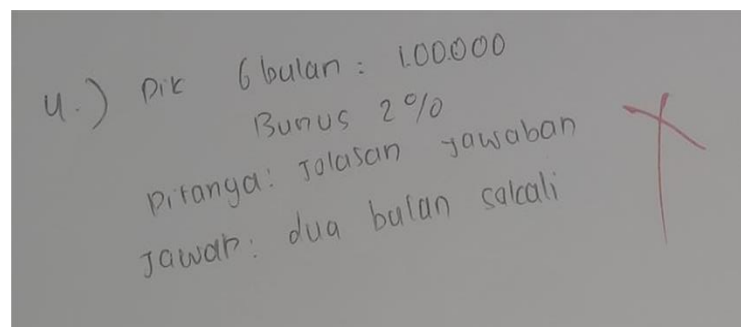 4.) Dik 6 bulan : 100.000
Bunus 2%
Ditanya: Jolasan Jawaban
Jawab: dua bulan sakali